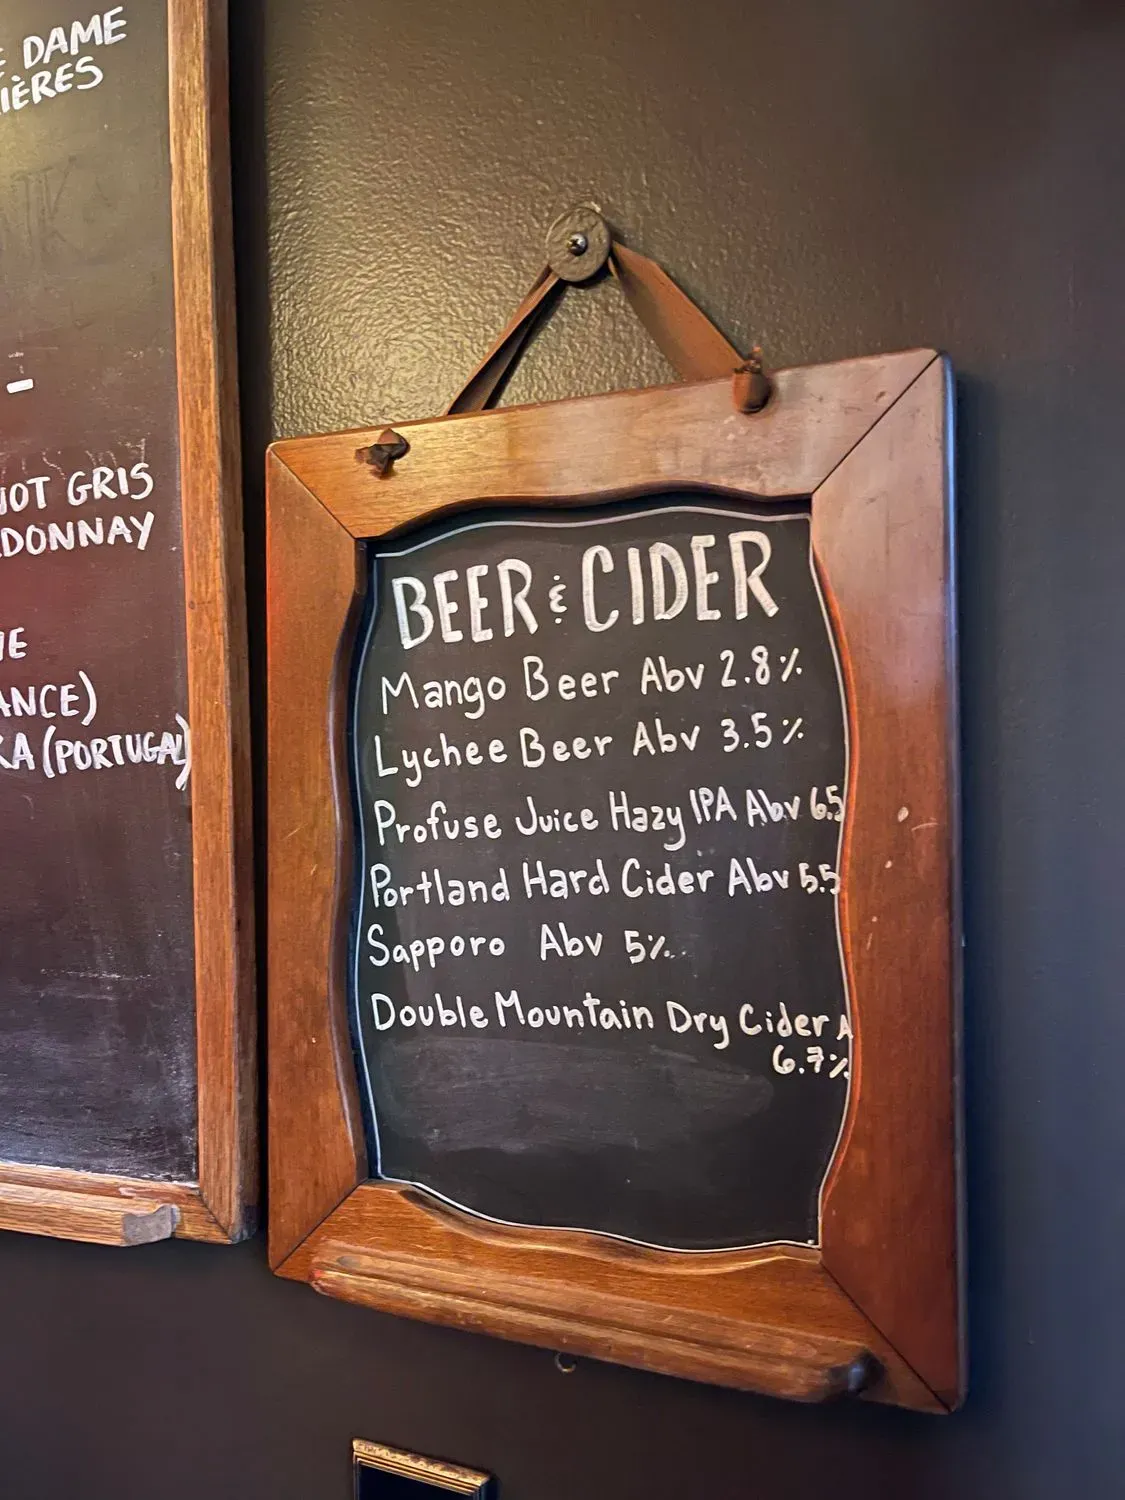 DAME
IÈRES
-
NOT GRIS
DONNAY
ANCE)
KA (PORTUGAL)
BEER & CIDER
Mango Beer Abv 2.8%
Lychee Beer Abv 3.5%
Profuse Juice Hazy IPA Abv 6.5
Portland Hard Cider Abv 5.5
Sapporo Abv 5%
Double Mountain Dry Cider A
6.7%